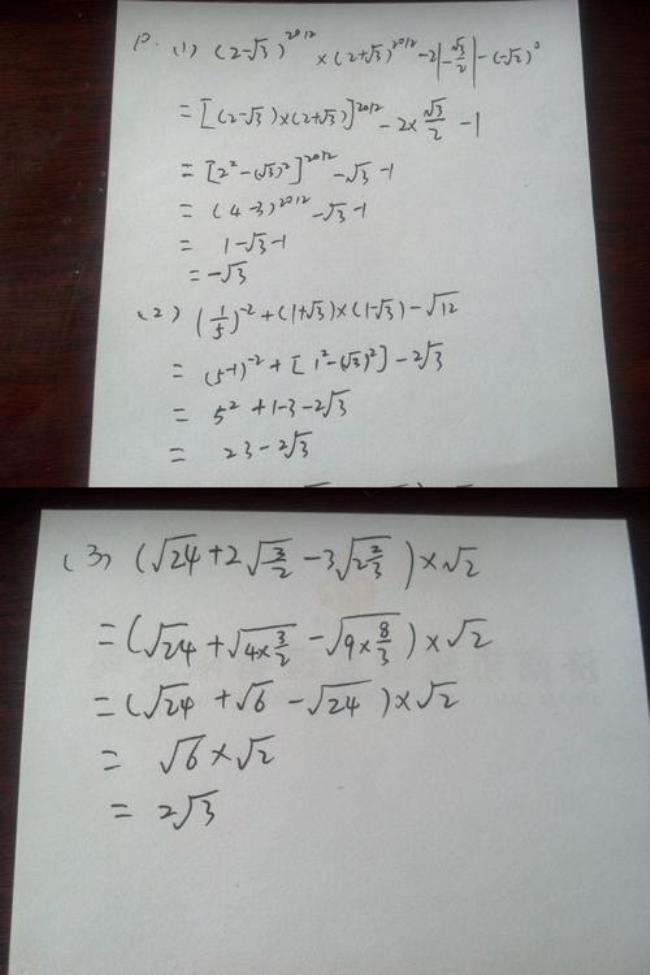 P. (1) (2-√3)^2012 ×(2+√3)^2012 -2|-√3/2|-(-√2)^0
=[(2-√3)×(2+√3)]^2012 -2×√3/2 -1
=[2²-(√3)²]^2012 -√3-1
=(4-3)^2012 -√3-1
= 1-√3-1
=-√3
(2) (1/5)^-2 +(1+√3)×(1-√3)-√12
= (5^-1)^-2 +[1²-(√3)²]-2√3
= 5² +1-3-2√3
= 23-2√3
(3) (√24+2√3/2 -3√2 2/3)×√2
=(√24 +√4×3/2 -√9×8/3)×√2
=(√24 +√6 -√24)×√2
= √6×√2
= 2√3